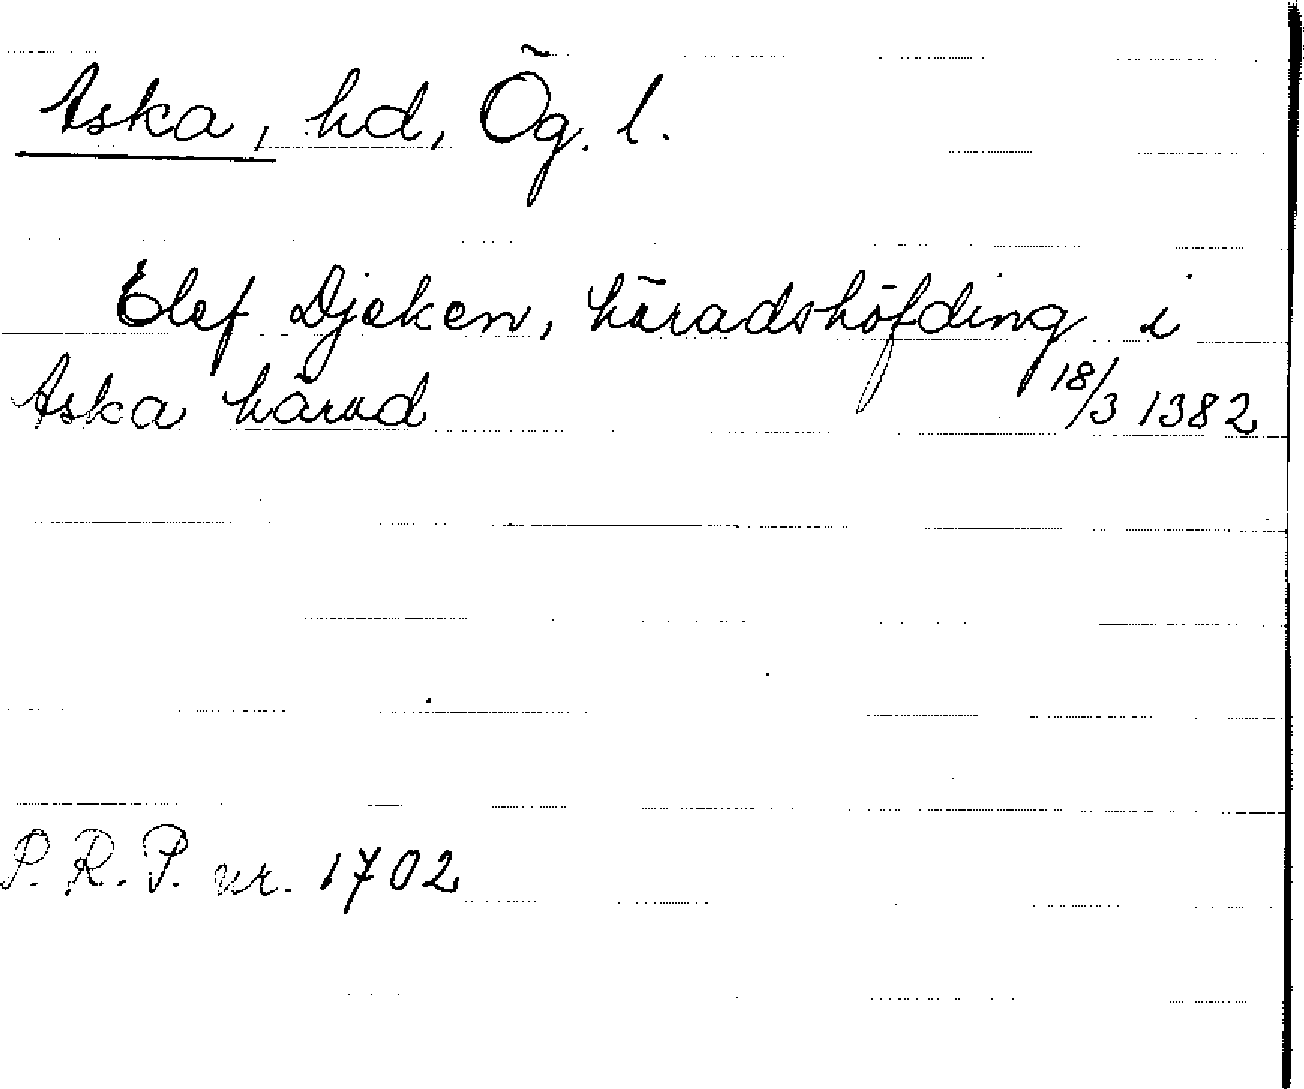 Aska, hd, Ög. l.
Olef Djeken, häradshöfding i
Aska härad 18/3 1382
P. R. P. nr. 1702